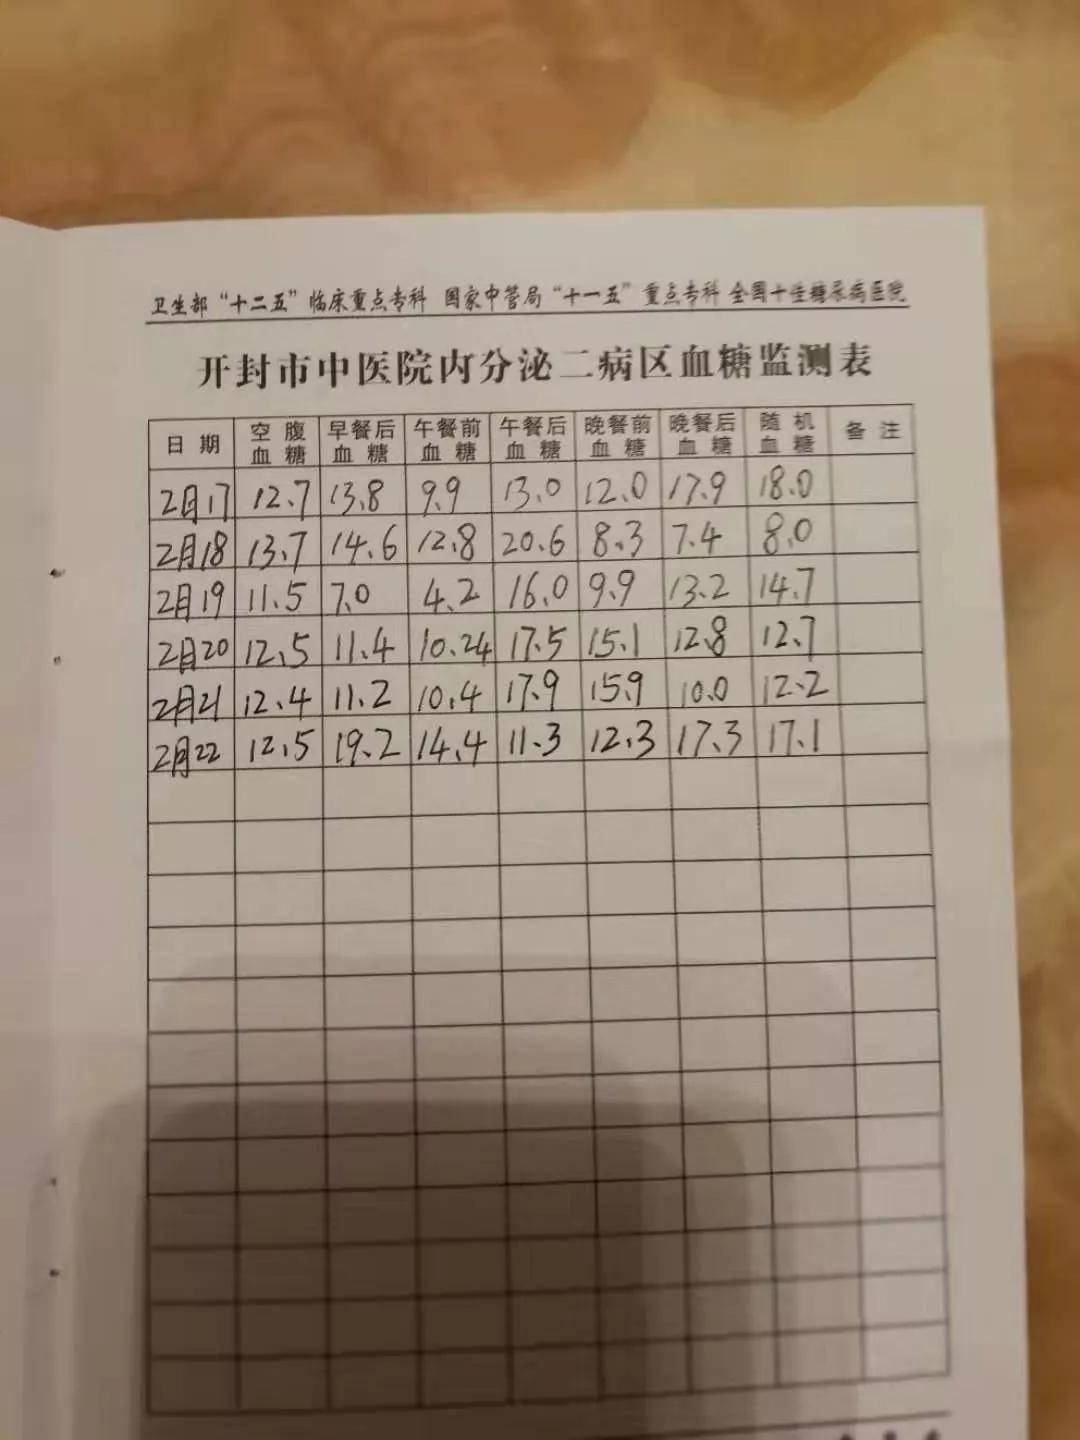 卫生部“十二五”临床重点专科 国家中管局“十一五”重点专科 全国十佳糖尿病医院
开封市中医院内分泌二病区血糖监测表
日期 空腹血糖 早餐后血糖 午餐前血糖 午餐后血糖 晚餐前血糖 晚餐后血糖 随机血糖 备注
2月17 12.7 13.8 9.9 13.0 12.0 17.9 18.0
2月18 13.7 14.6 12.8 20.6 8.3 7.4 8.0
2月19 11.5 7.0 4.2 16.0 9.9 13.2 14.7
2月20 12.5 11.4 10.24 17.5 15.1 12.8 12.7
2月21 12.4 11.2 10.4 17.9 15.9 10.0 12.2
2月22 12.5 19.2 14.4 11.3 12.3 17.3 17.1